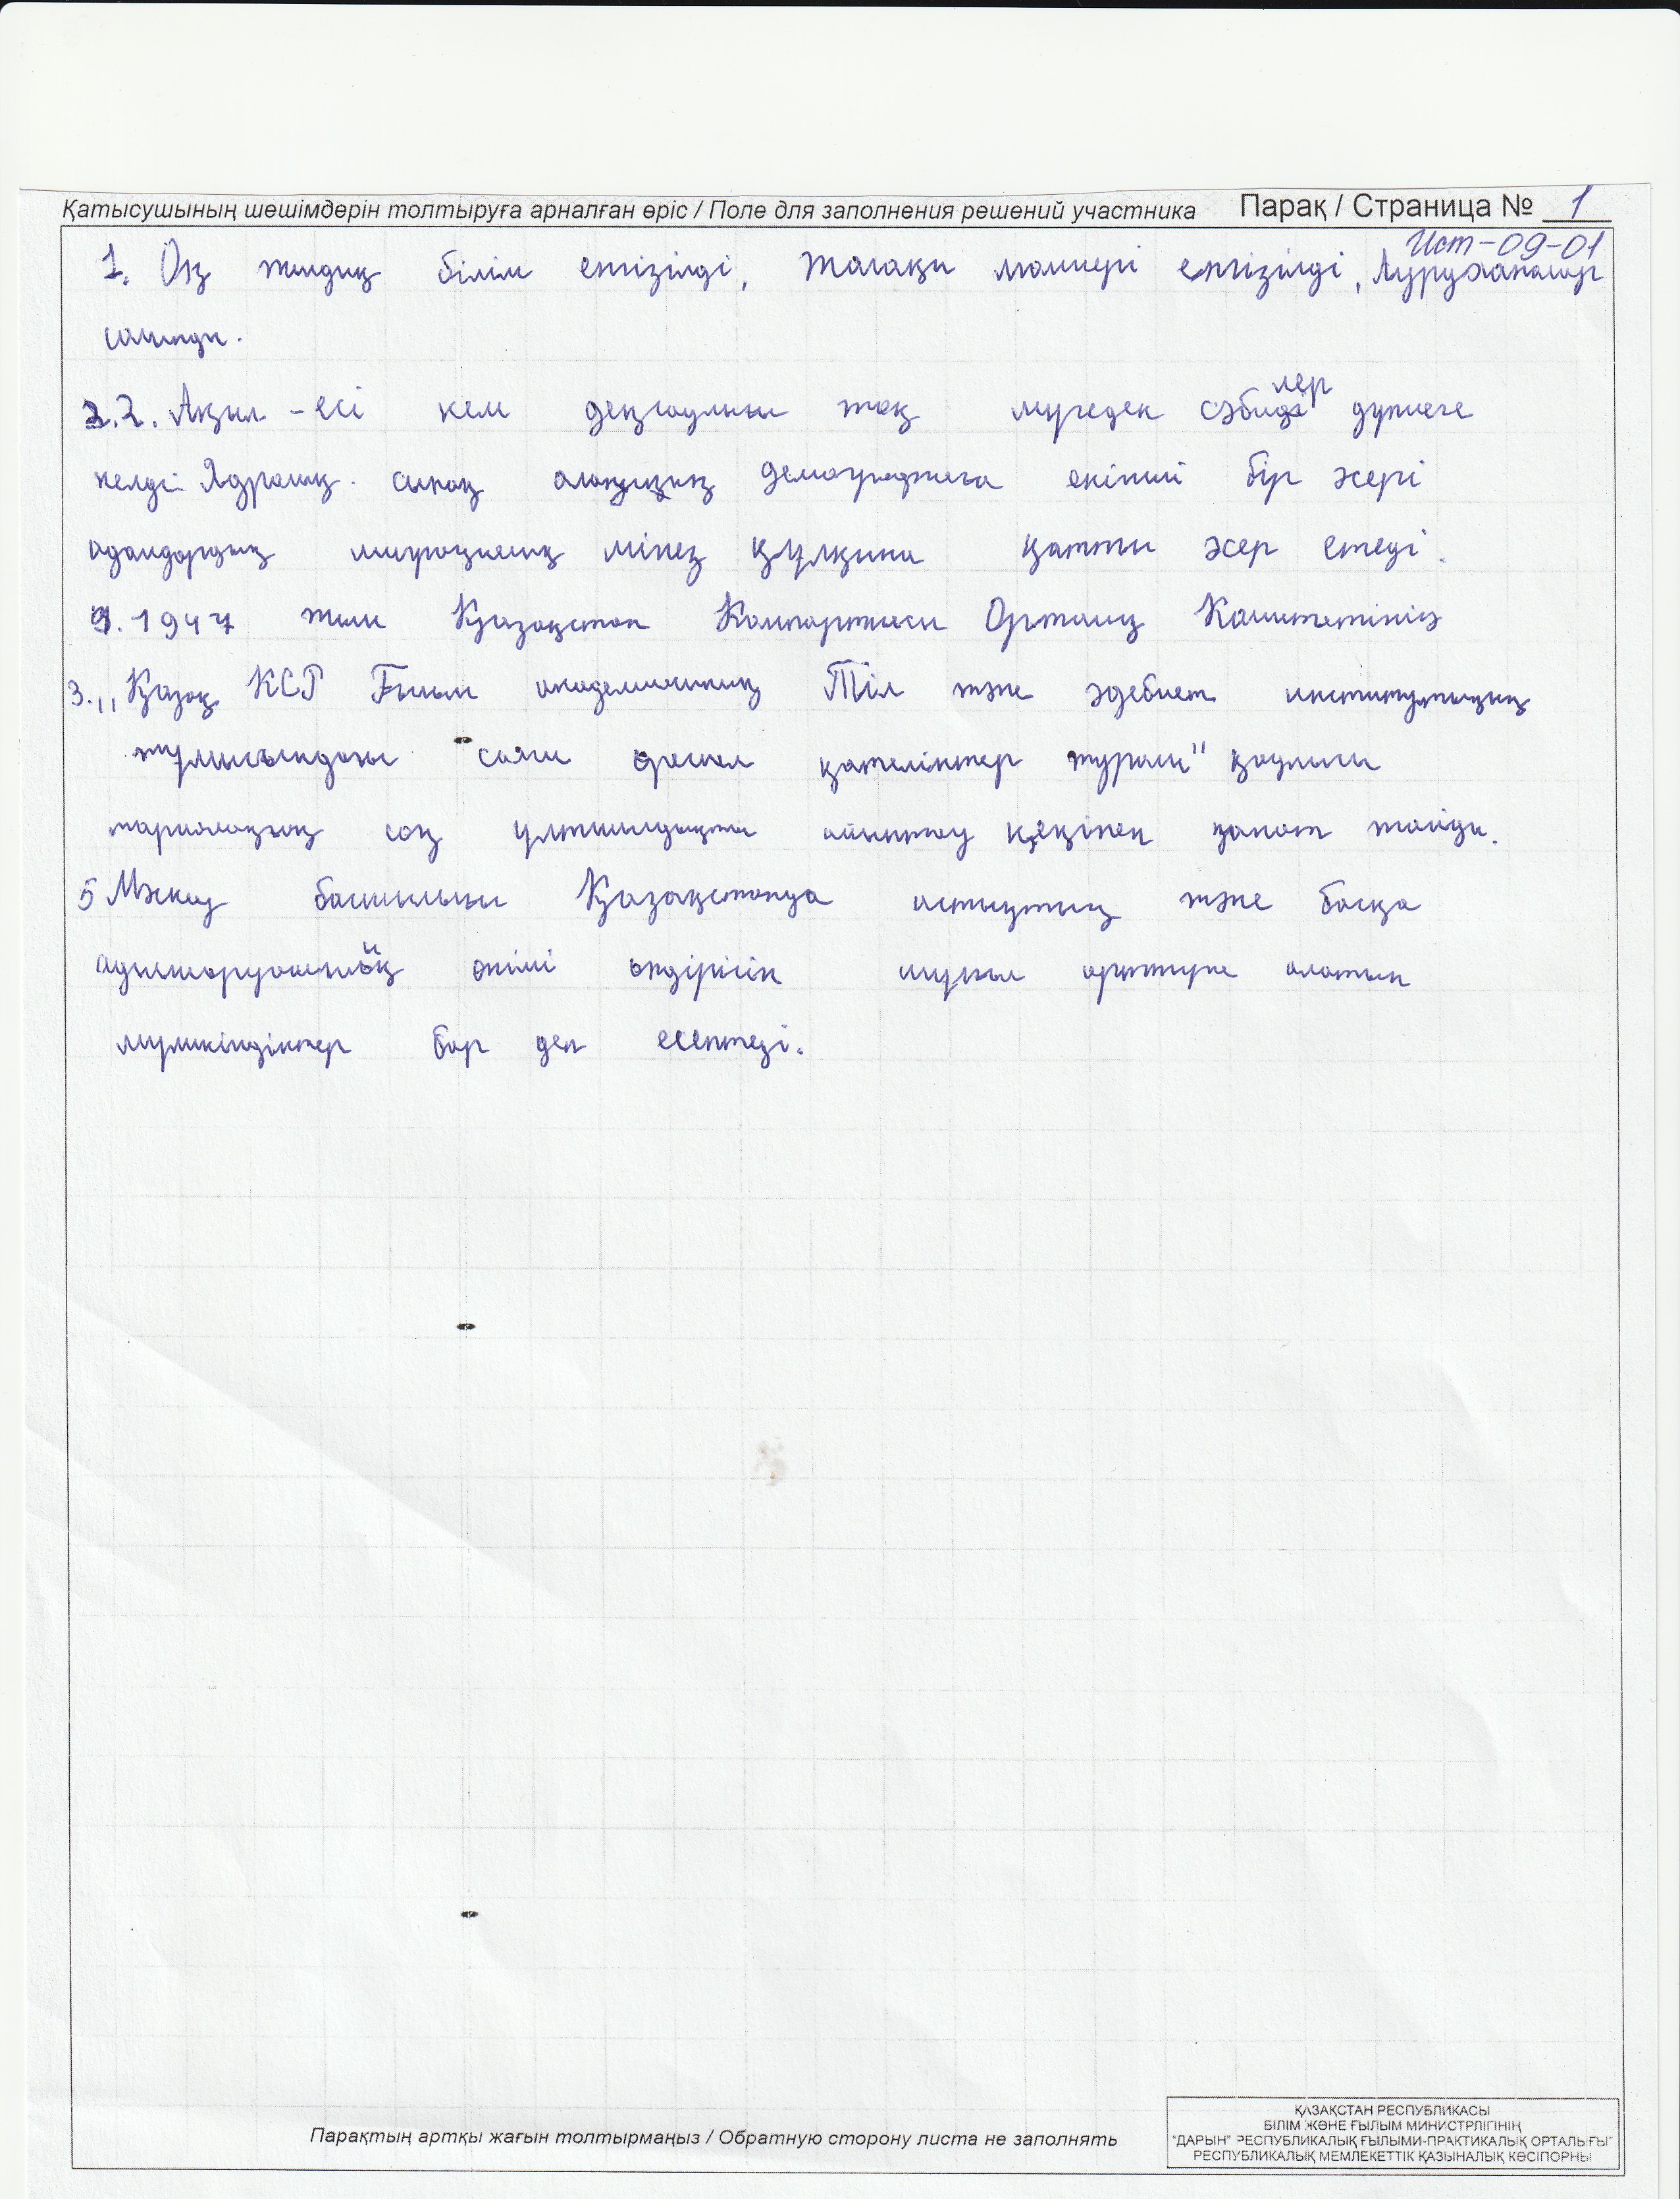 Қатысушының шешімдерін толтыруға арналған өріс / Поле для заполнения решений участника Парақ / Страница № 1
Ист-09-01
1. Он жылдық білім енгізілді, жалақы мөлшері енгізілді, Ауруханалар
салынды.
2. Ақыл-есі кем денсаулығы жоқ мүгедек сәбилер дүниеге
келді. Ядролық сынақ алаңының демографияға екінші бір әсері
адамдардың мінез құлқына қатты әсер етеді.
1947 жылы Қазақстан Компартиясы Орталық Комитетінің
3. „Қазақ КСР Ғылым академиясының Тіл және әдебиет институтының
жұмысындағы саяси өрескел қателіктер туралы" қаулысы
соң ұлтшылдықты айыптау кеңінен қанат жайды.
5 Мәскеу басшылығы Қазақстанда астықтың және басқа
ауылшаруашылық өнімі өндірісін шұғыл арттыра алатын
мүмкіндіктер бар деп есептеді.
Парақтың артқы жағын толтырмаңыз / Обратную сторону листа не заполнять
ҚАЗАҚСТАН РЕСПУБЛИКАСЫ
БІЛІМ ЖӘНЕ ҒЫЛЫМ МИНИСТРЛІГІНІҢ
"ДАРЫН" РЕСПУБЛИКАЛЫҚ ҒЫЛЫМИ-ПРАКТИКАЛЫҚ ОРТАЛЫҒЫ"
РЕСПУБЛИКАЛЫҚ МЕМЛЕКЕТТІК ҚАЗЫНАЛЫҚ КӘСІПОРНЫ